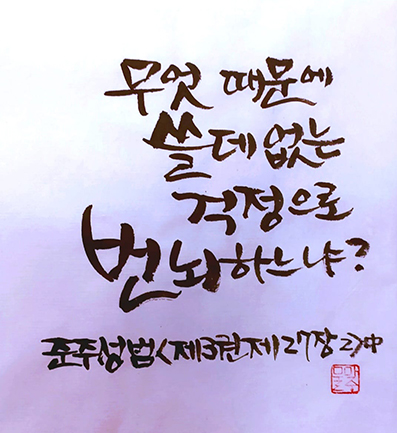 무엇 때문에
쓸데없는
걱정으로
번뇌하느냐?
준주성범<제3권제27장2>中